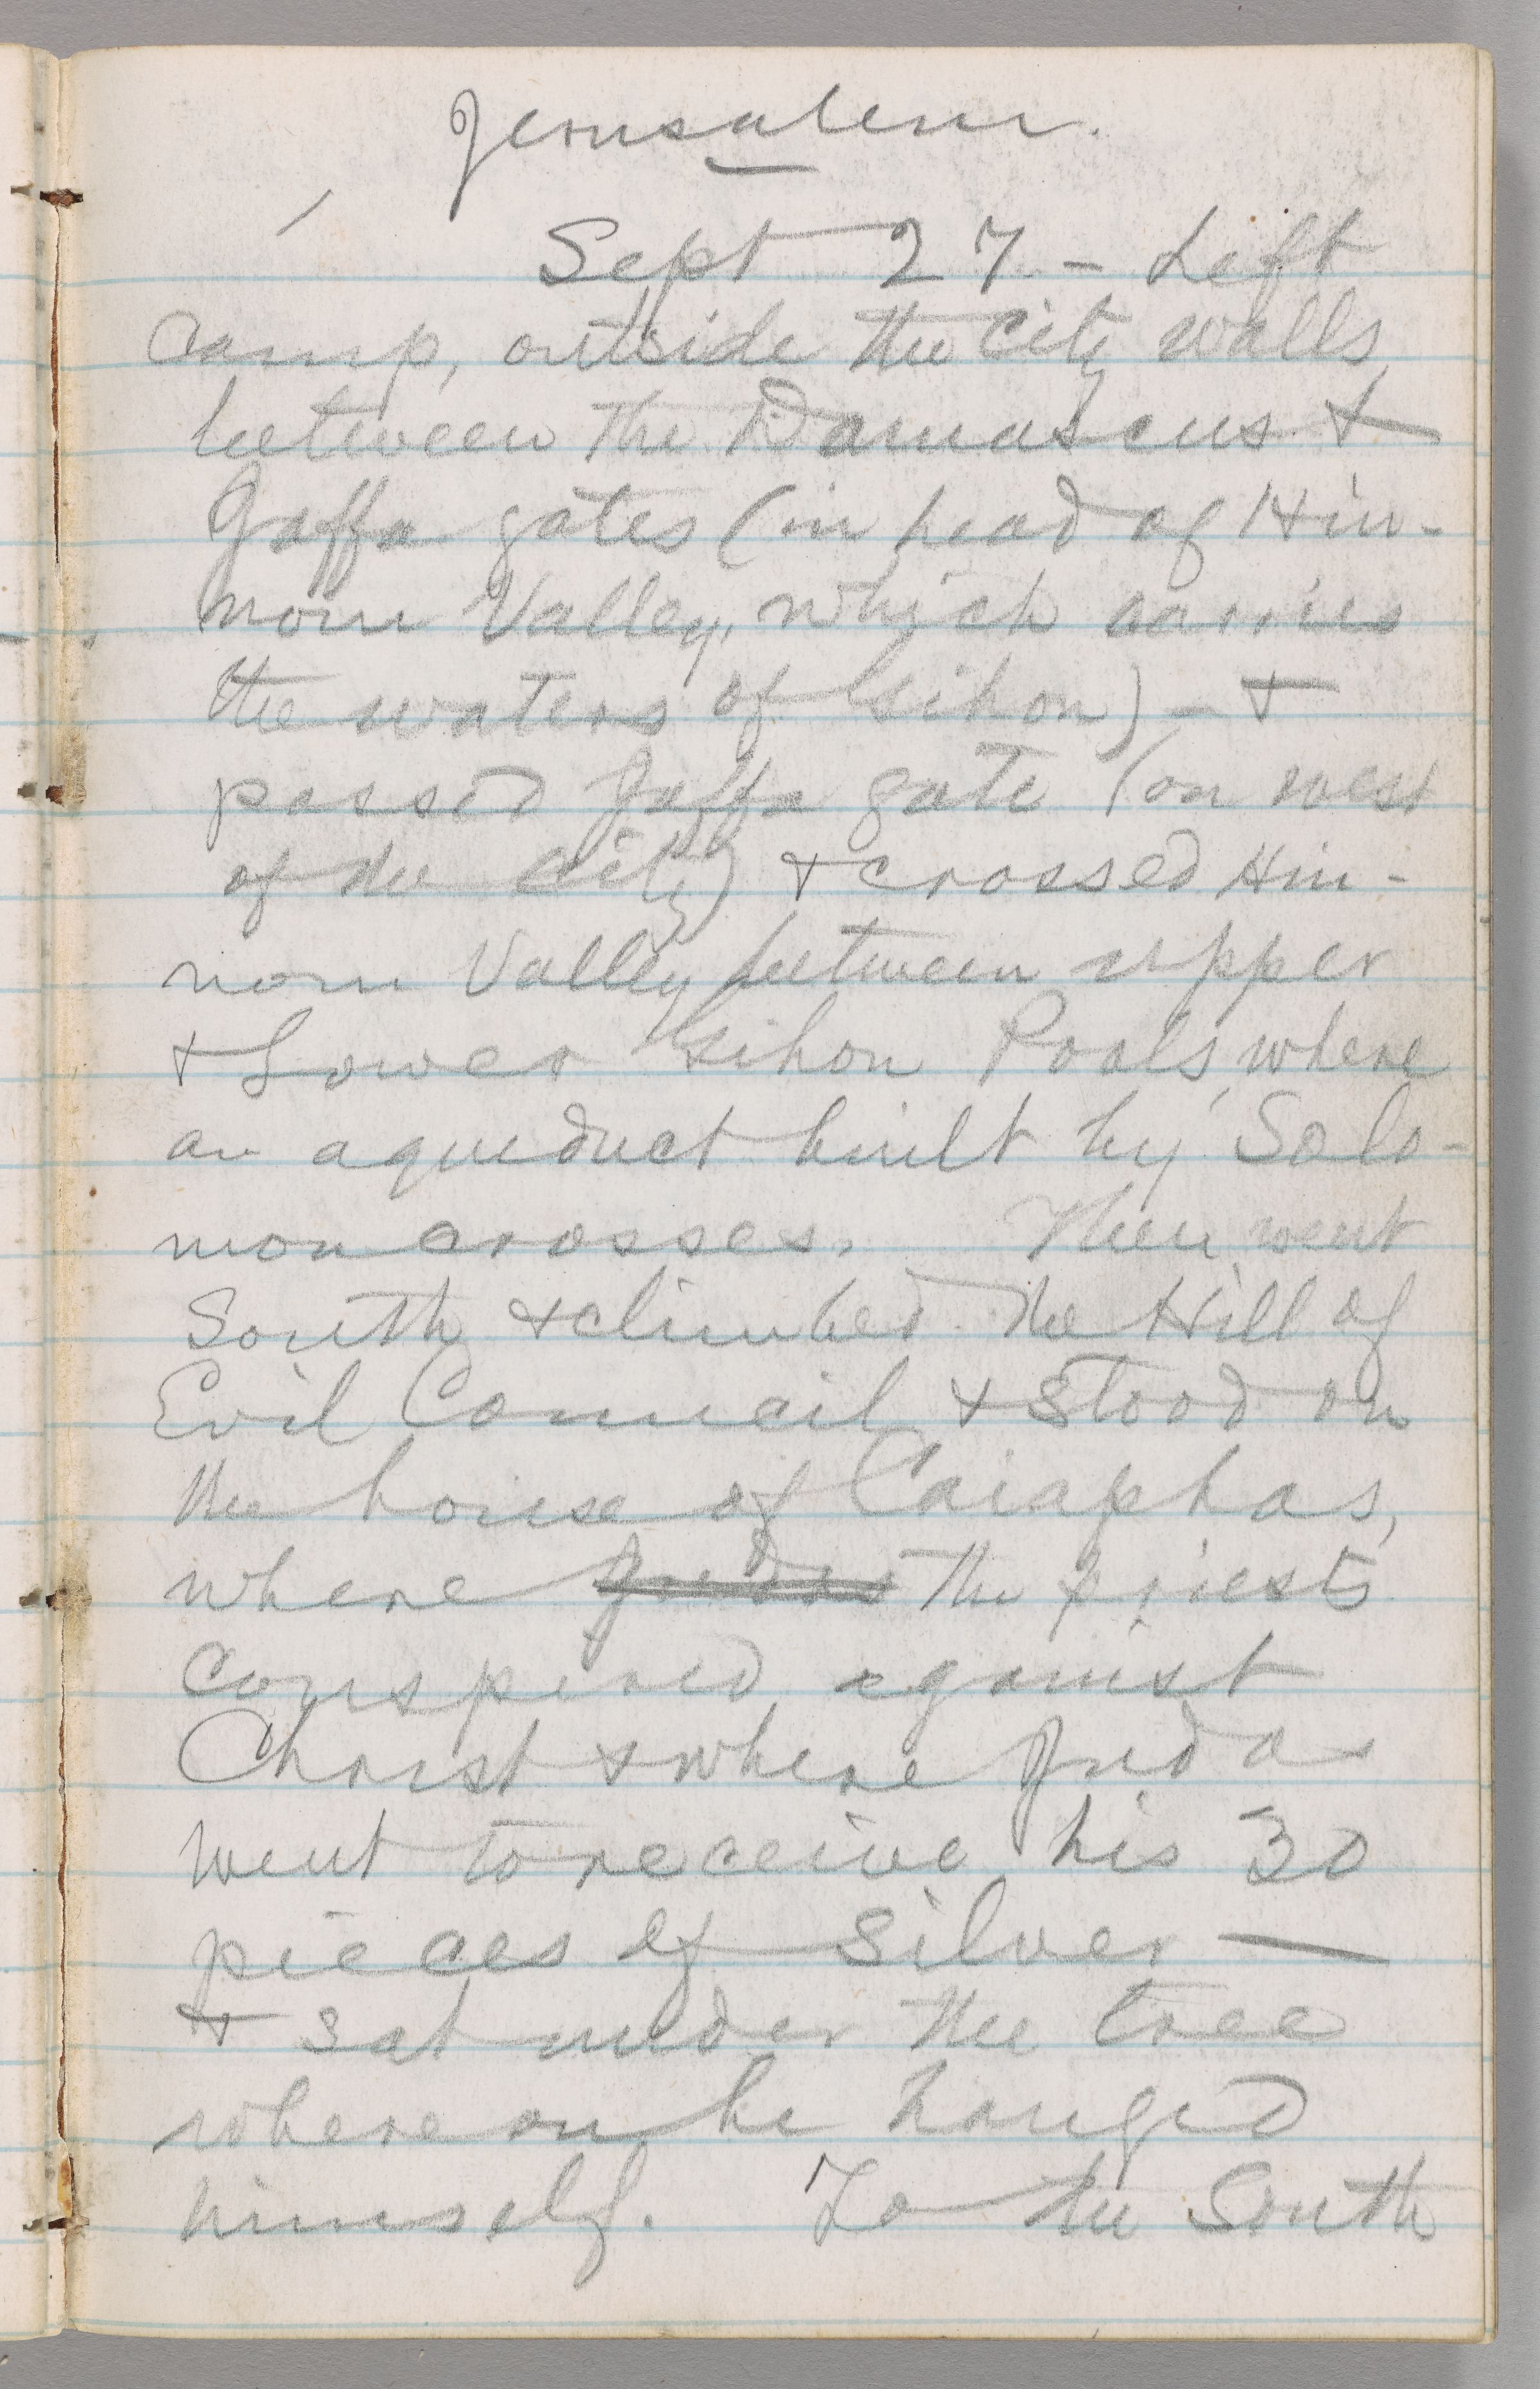 Jerusalem.
Sept 27 - Left
camp, outside the city walls,
between the Damascus &
Jaffa gates (in head of Hin-
nom Valley, which carries
the waters of Gihon) - &
passed Jaffa gate (on west
of the city) & crossed Hin-
nom Valley between upper
& Lower Gihon Pools, where
an aqueduct built by Solo-
mon crosses. Then went
South & climbed the Hill of
Evil Council & stood on
the house of Caiaphas,
where Judas the priests
conspired against
Christ & where Judas
went to receive his 30
pieces of silver —
& sat under the tree
whereon he hanged
himself. To the South